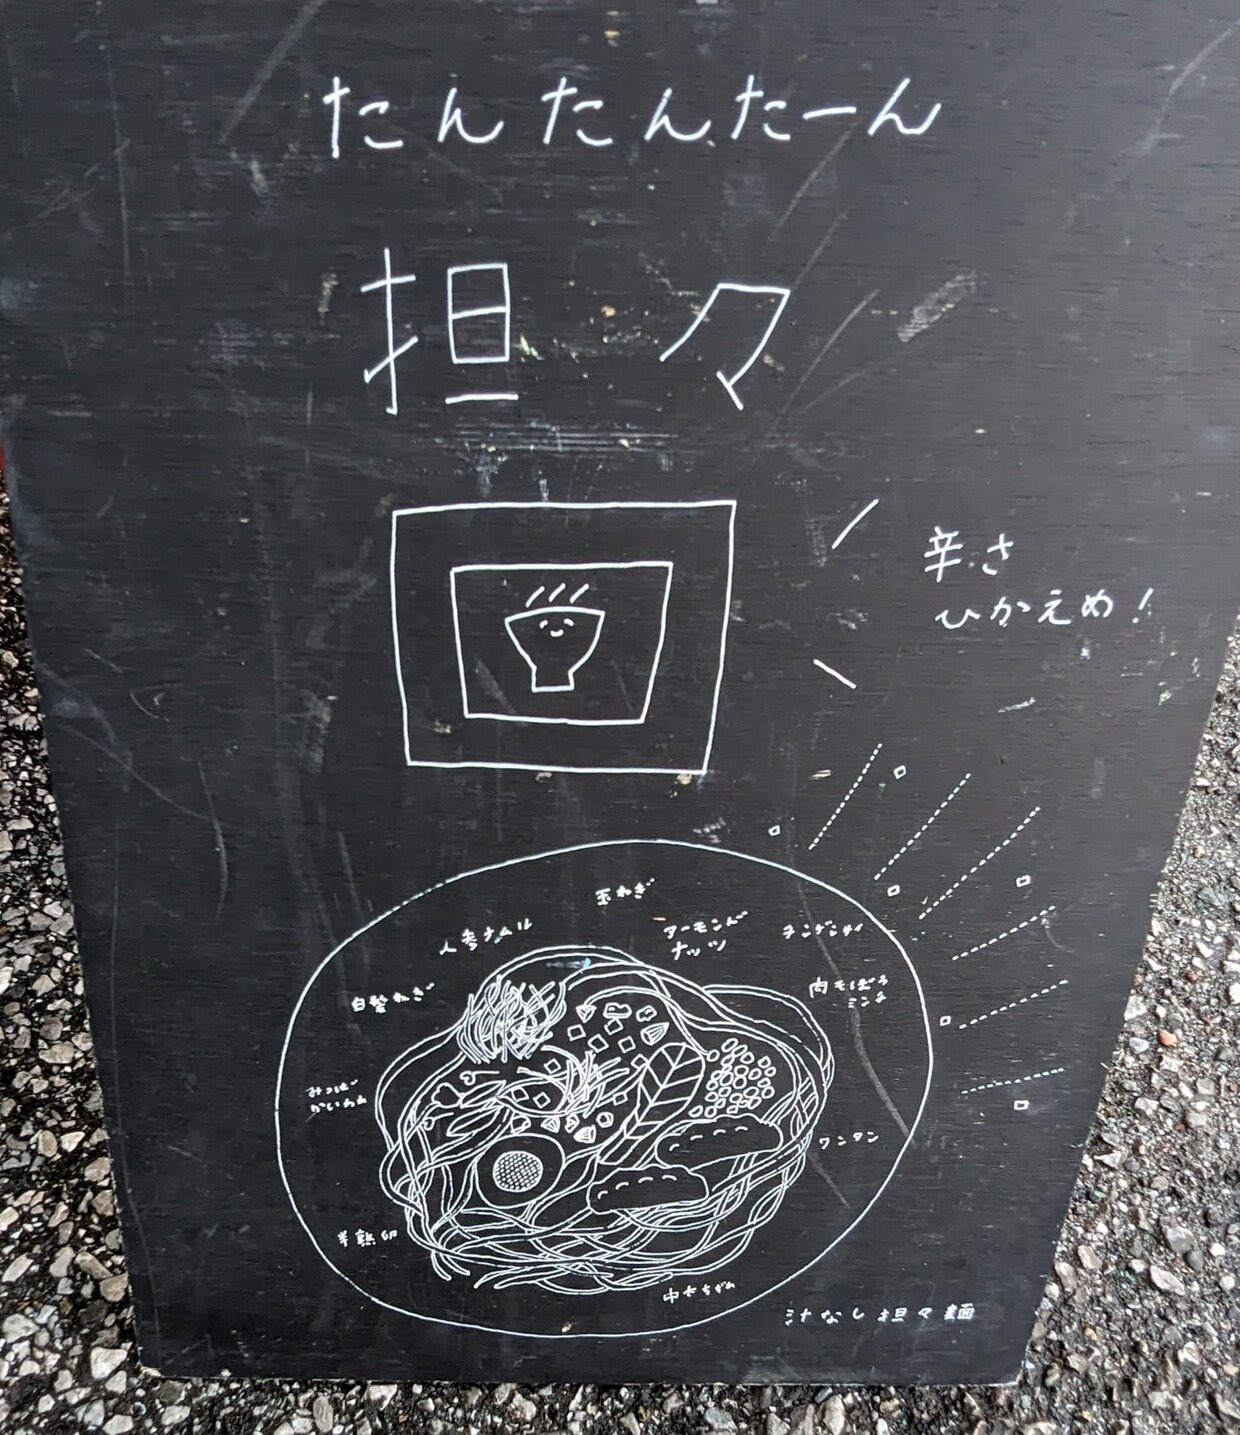 たんたんたーん
担々
辛さ
ひかえめ！
玉ねぎ
人参ナムル
アーモンド
ナッツ
チンゲンサイ
白髪ねぎ
肉そぼろ
ミンチ
みつば
かいわれ
ワンタン
半熟卵
中太ちぢれ
汁なし担々麺